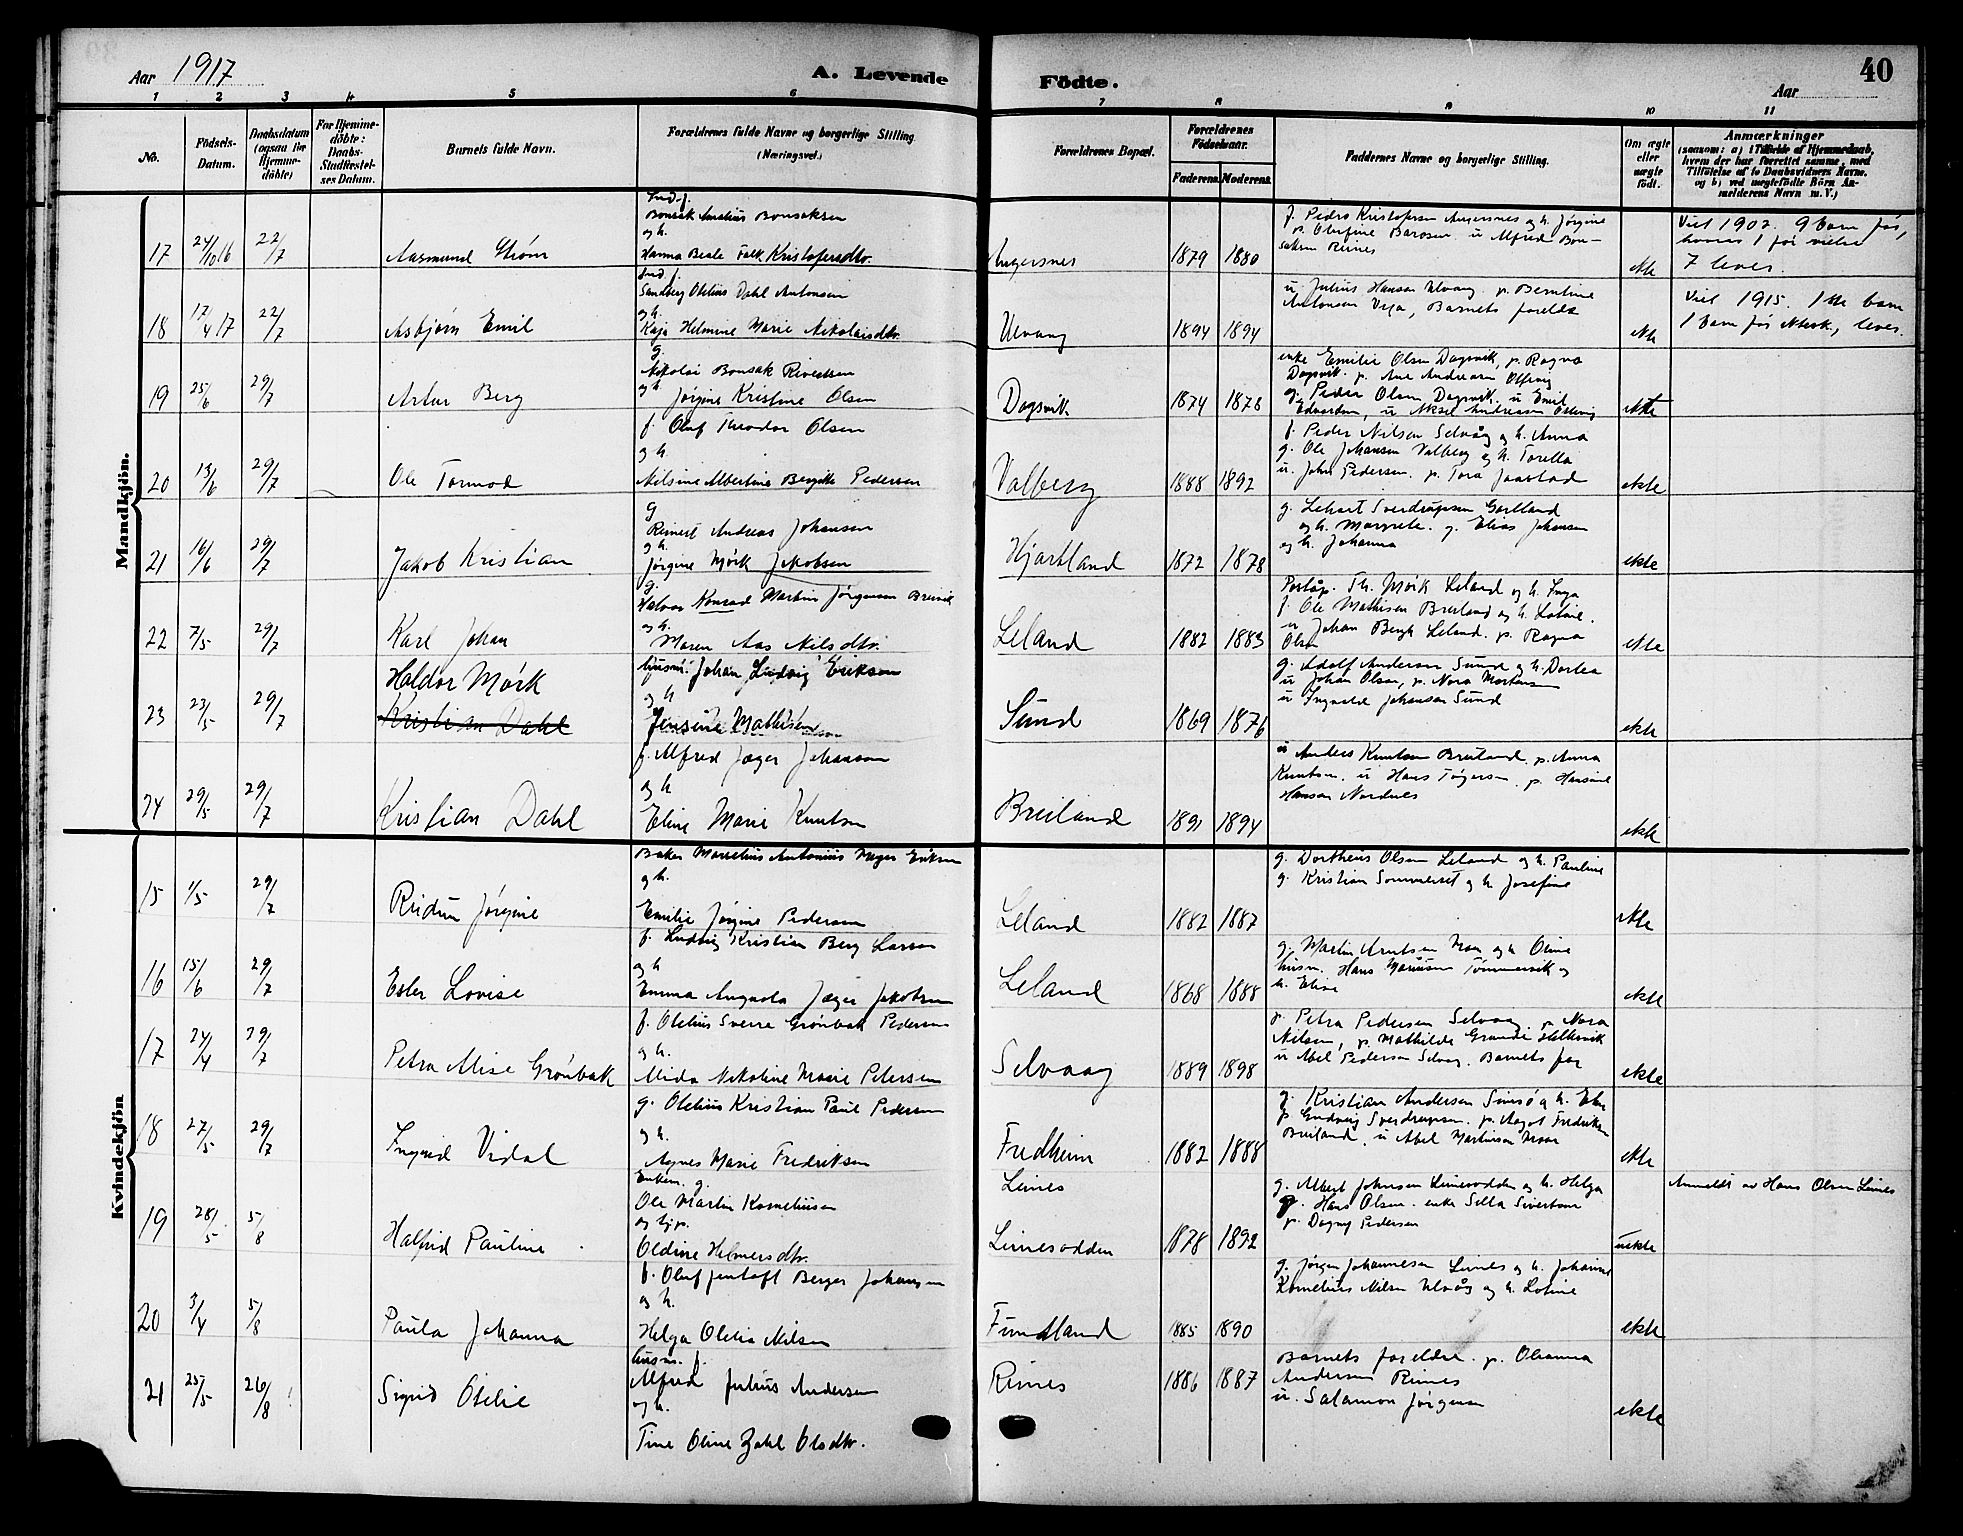 Aar 1917
A. Levende
Födte.
40
Aar
1 2 3 4 5 6 7 8 9 10 11
No.
Födsels-
Datum.
Daabsdatum
(ogsaa for
Hjemme-
döbte)
For Hjemme-
döbte:
Daabs-
Stadfæstel-
ses Datum.
Barnets fulde Navn.
Forældrenes fulde Navne og borgerlige Stilling
(Næringsvei.)
Forældrenes Bopæl.
Forældrenes
Födselsaar.
Faderens Moderens
Faddernes Navne og borgerlige Stilling.
Om ægte
eller
uægte
födt.
Anmærkninger
(saasom: a) i Tilfælde af Hjemmedaab,
hvem der har forrettet samme, med
Tilföielse af to Daabsvidners Navne,
og b) ved uægtefödte Börn An-
melderens Navn m. V.)
Mandkjön.
17 24/10 16 22/7 Aasmund Strøm
Ind. f.
Bonsak Anelius Bonsaksen
og h.
Hanna Beate Falk Kristofersdtr.
Angersnes 1879 1880
f. Pedro Kristofersen Angersnes og h. Jørgine
p. Olufine Barosen u Alfred Bon-
saksen Reines
ekte
Viet 1902. 9 barn før,
hvoraf 1 før vielse
7 lever.
18 17/4 17 22/7 Asbjørn Emil
Ind. f.
Sandberg Otelius Dahl Antonsen
og h.
Kaja Helmine Marie Nikolaisdtr.
Ulvang 1894 1894
u. Julius Hansen Ulvang p. Berntine
Antonsen Vega, Barnets foreldre
ekte
Viet 1915. 1ste barn
1 barn før ektesk., lever.
19 25/6 29/7 Artur Berg
g.
Nikolai Bonsak Reinertsen
og h. Jørgine Kristine Olsen
Dagsvik 1874 1878
enke Emilie Olsen Dagsvik, p. Ragna
Dagsvik. p. Ane Andreasen
g. Peder Olsen Dagsvik u Emil
Edvardsen, u Aksel Andreasen
ekte
20 13/6 29/7 Ole Tormod
f. Oluf Theodor Olsen
og h.
Nilsine Albertine Bergitte Pedersen
Valberg 1888 1892
f. Peder Nilsen Selvåg og h. Anna
g. Ole Johansen Valberg og h. Torella
u. John Pedersen. p. Tora Jaastad
ekte
21 16/6 29/7 Jakob Kristian
g
Reinert Andreas Johansen
og h.
Jørgine Mørk Jakobsen
Hjartland 1872 1878
g. Lehart Sverdrupsen Gartland
og h. Margrete. g. Elias Johansen
og h. Johanna
ekte
22 7/5 29/7 Karl Johan
g.
Halvor Konrad Martin Jørgensen Breivik
og h.
Maren Aas Nilsdtr.
Leland 1882 1883
Poståp. Th. Mørk Leland og h. Inga
f. Ole Mathisen Breiland og h. Lovise.
u Johan Bergh Leland. p. Ragna
Olsen
ekte
23 23/5 29/7 Haldor Mørk
Kristian Dahl
husm. Johan Ludvig Erikson
og h
Jensine Mathisen
Sund 1869 1876
g. Adolf Andersen Sund og h. Dortea
u Johan Olsen, p. Nora Mortensen
u Ingvald Johansen Sund
ekte
24 29/5 29/7 Kristian Dahl
f. Alfred Jæger Johansen
og h
Eline Marie Knutsen
Breiland 1891 1894
u Anders Knutsen Breiland, p. Anna
Knutsen. u Hans Tøgersen p. Hansine
Hansen Nordnes
ekte
Kvindekjön
15 1/5 29/7 Reidun Jørgine
Baker Marselius Antonius Meyer Eriksen
og h.
Emilie Jørgine Pedersen
Leland 1882 1887
g. Dortheus Olsen Leland og h. Pauline
g. Kristian Sommerset og h Josefine
ekte
16 15/6 29/7 Ester Lovise
f. Ludvig Kristian Berg Larsen
og h
Emma Augusta Jæger Jakobsen
Leland 1868 1888
g. Martin Arntsen Moen og h Oline
husm. Hans Mariusen Tømmervik og
h. Elise
ekte
17 24/4 29/7 Petra Alise Grønbak
f. Otelius Sverre Grønbak Pedersen
og h.
Alida Nikoline Marie Petersen
Selvaag 1889 1898
p. Petra Pedersen Selvaag p. Nora
Nilsen, p. Mathilde Grande
u Abel Pedersen Selvaag. Barnets far
ekte
18 27/5 29/7 Ingrid Vidal
g. Otelius Kristian Paul Pedersen
og h.
Agnes Marie Fredriksen
Fredheim 1882 1888
g. Kristian Andersen og h.
p. Gudveig Sverdrupsen. p. Aagot Fredriksen
Breiland. u Abel Martinsen Moen
ekte
19 28/5 5/8 Halfrid Pauline
Enkem. g.
Ole Martin Korneliusen
og tjp.
Oldine Helmersdtr.
Leines
Leinesodden 1878 1892
g. Albert Johnsen Leinesodden og h. Helga
g. Hans Olsen. enke Sella Sivertsen
p. Dagny Pedersen
uekte
Anmeldt av Hans Olsen Leines
20 3/4 5/8 Paula Johanna
f. Oluf Jentoft Berger Johansen
og h.
Helga Otelia Nilsen
Fundland 1885 1890
g. Jørgen Johannesen Leines og h. Johanne
Kornelius Nilsen Ulvåg og h. Lovine
ekte
21 25/5 26/8 Sigrid Otelie
husm. f.
Alfred Julius Andersen
og h.
Tine Oline Zahl Olsdtr.
Reines 1886 1887
Barnets foreldre. p. Olianna
Andersen Reines
u. Salamon Jørgensen
ekte